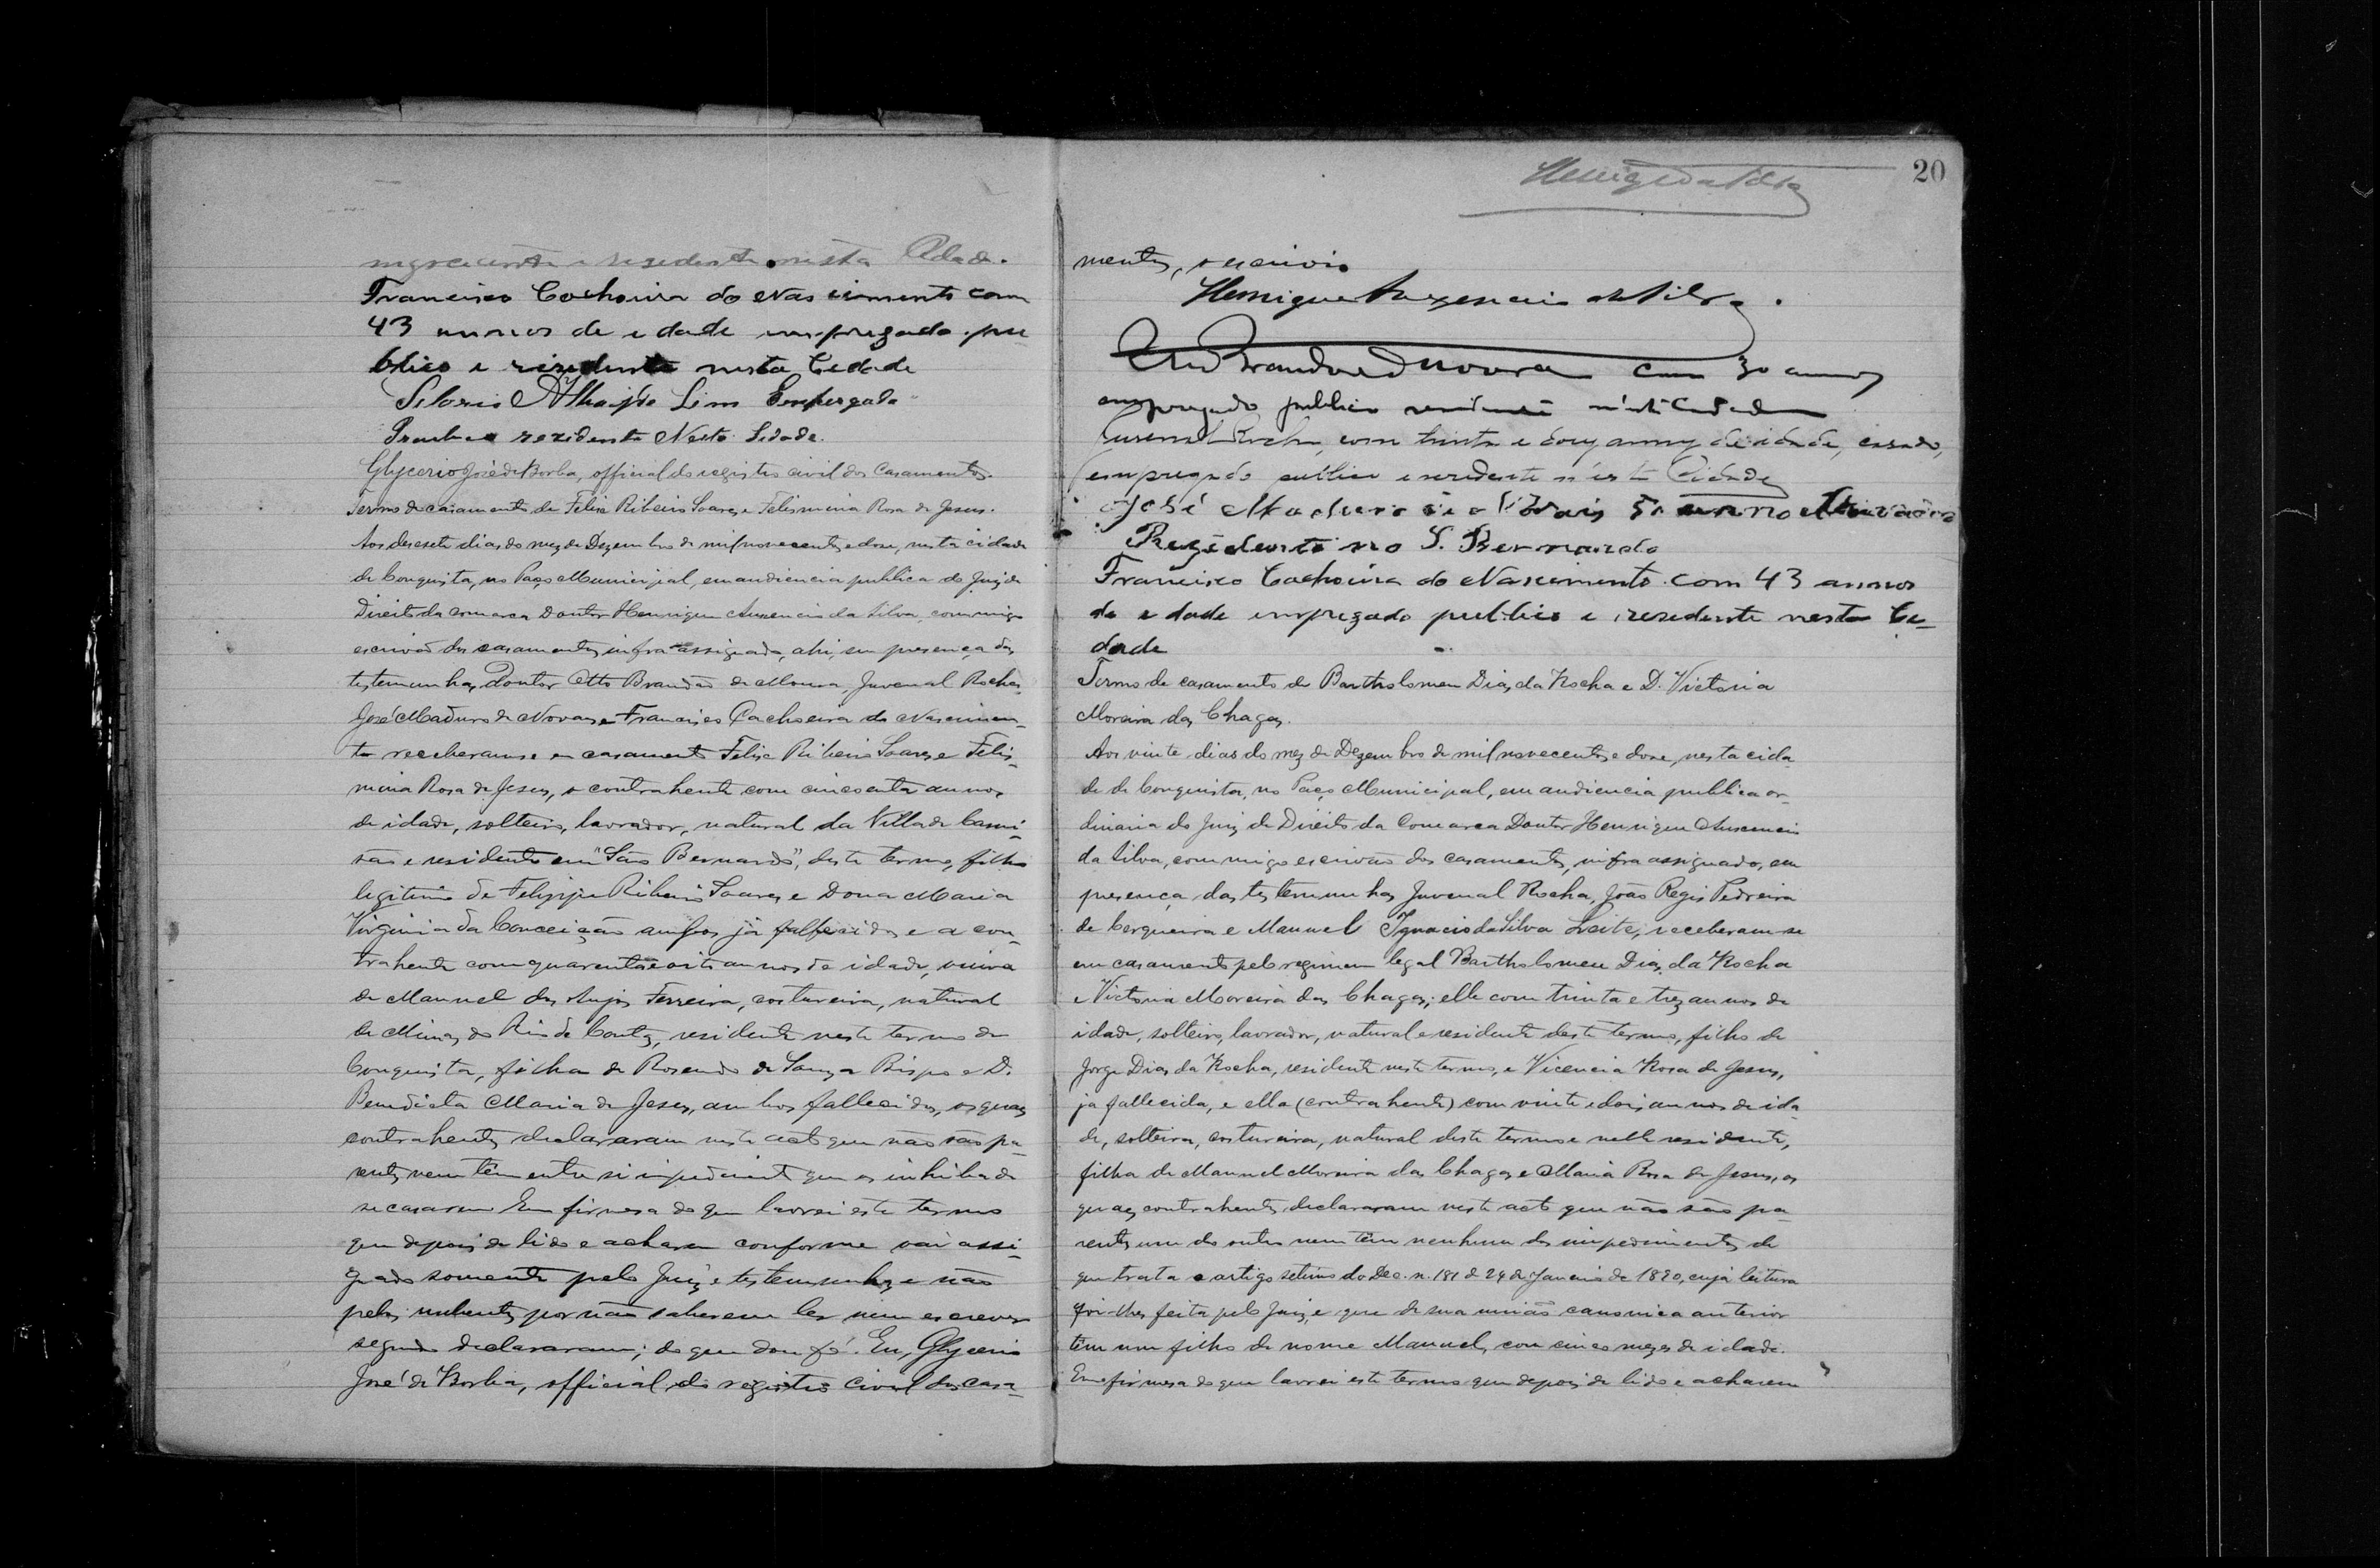 negociante e residente nesta Cidade.
Francisco Cachoeira do Nascimento com
43 annos de edade empregado pu
blico e rezidente nesta Cedade
Lima Empergado
rezidente Nesta Sidade.
Glycerio José de Borba, official do registro civil dos Casamentos.
Termo de casamento de Felix Ribeiro Soares e Felismina Rosa de Jesus.
Aos desesete dias do mez de Dezembro de mil novecentos e dose, nesta cidade
de Conquista, no Paço Municipal, em audiencia publica do Juiz de
Direito da comarca Doutor Henrique Auxencio da Silva, commigo
escrivão dos casamentos, infra assignado, ahi, em presença das
testemunhas, Doutor Otto Brandão de Moura, Juvenal Rocha,
José Maduro de Novaes e Francisco Cachoeira do Nascimen-
to receberam-se em casamento Felix Ribeiro Soares e Felis-
mina Rosa de Jesus, o contrahente com cincoenta annos
de idade, solteiro, lavrador, natural da Villa de Cami-
são e residente em "São Bernardo", deste termo, filho
legitimo de Felippe Ribeiro Soares e Dona Maria
Virginia da Conceição ambos já fallecidos e a con-
trahente com quarenta e oito annos de idade, viuva
de Manuel dos Anjos Ferreira, costureira, natural
de Minas do Rio de Contas, residente neste termo de
Conquista, filha de Rosendo de Souza Bispo e D.
Benedicta Maria de Jesus, ambos fallecidos, os quaes
contrahentes declararam neste acto que não são pa-
rentes nem têm entre si impedimento que os inhiba de
se casarem. Em firmesa do que lavrei este termo
que depois de lido e acharem conforme vai assi-
gnado somente pelo Juiz e testemunhas e não
pelos nubentes por não saberem ler nem escrever
segundo declararam; do que dou fé. Eu, Glycerio
José de Borba, official do registro civil dos casa-
20
mentos, o escrivio
Henrique Auxencio da Silva.
Otto Brandão de Moura com 30 annos
empregado publico residente nesta Cidade
Juvenal Rocha, com trinta e dous annos de idade, casado,
empregado publico e residente n'esta Cidade
José Maduro de Novais 50 anno
Rezidente no S. Bernardo
Francisco Cachoeira do Nascimento com 43 annos
de edade empregado publico e rezedente nesta Ce-
dade
Termo de casamento de Bartholomeu Dias da Rocha e D. Victoria
Moreira das Chagas.
Aos vinte dias do mez de Dezembro de mil novecentos e dose, nesta cida-
de de Conquista, no Paço Municipal, em audiencia publica or-
dinaria do Juiz de Direito da Comarca Doutor Henrique Auxencio
da Silva, commigo escrivão dos casamentos, infra assignado, em
presença das testemunhas Juvenal Rocha, João Regis Pedreira
de Cerqueira e Manuel Ignacio da Silva Leite, receberam-se
em casamento pelo regimem legal Bartholomeu Dias da Rocha
e Victoria Moreira das Chagas; elle com trinta e trez annos de
idade, solteiro, lavrador, natural e residente deste termo, filho de
Jorge Dias da Rocha, residente neste termo, e Vicencia Rosa de Jesus,
ja fallecida, e ella (contrahente) com vinte e dois annos de ida-
de, solteira, costureira, natural deste termo e nelle residente,
filha de Manuel Moreira das Chagas e Maria Rosa de Jesus, os
quaes contrahentes declararam neste acto que não são pa-
rentes um do outro nem têm nenhum dos impedimentos de
que trata o artigo setimo do Dec. n. 181 de 24 de Janeiro de 1890, cuja leitura
foi-lhes feita pelo Juiz, e que de sua união canonica anterior
têm um filho de nome Manuel, com cinco mezes de idade.
Em firmesa do que lavrei este termo que depois de lido e acharem